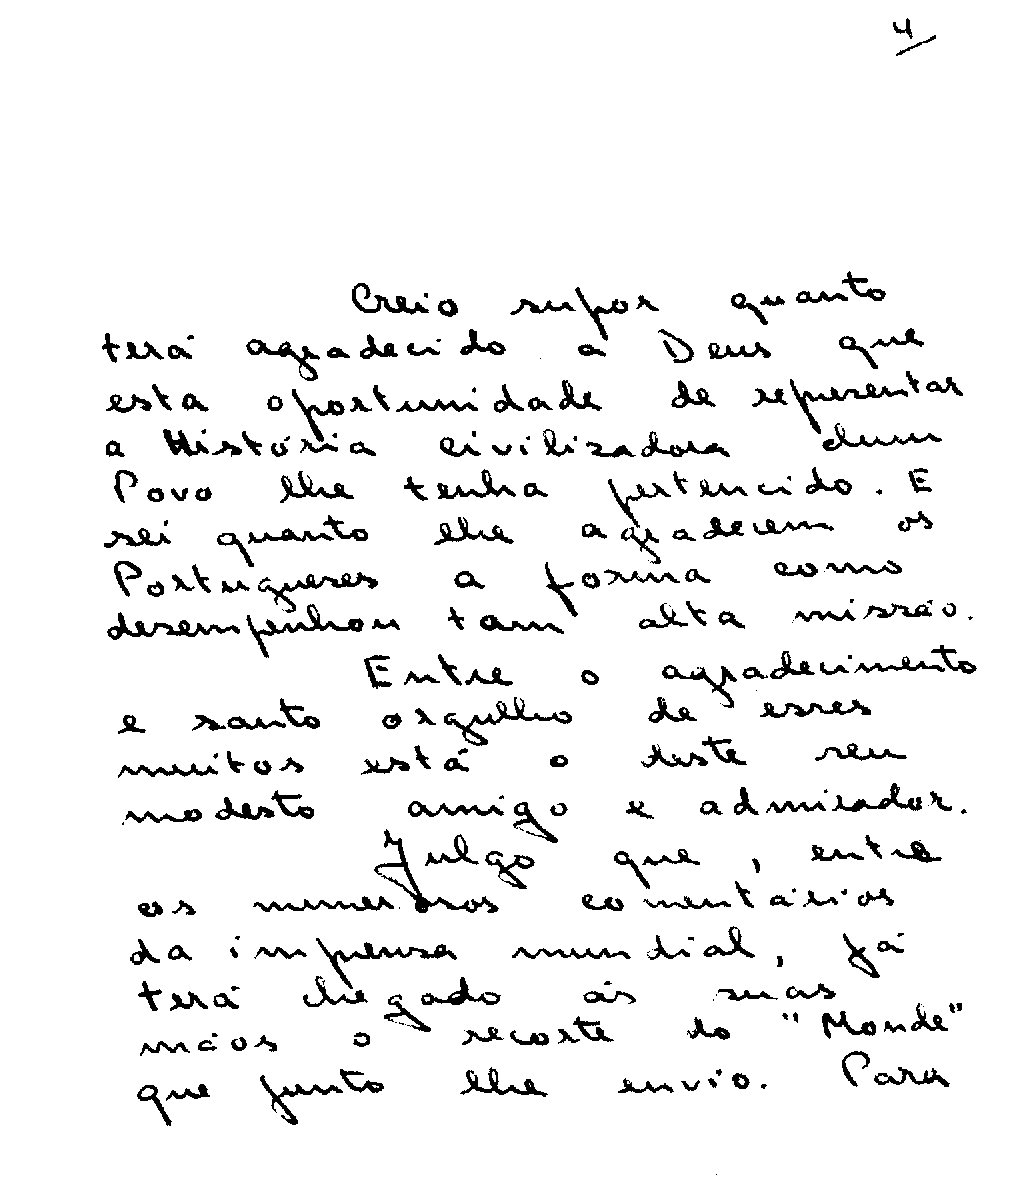 4
Creio supor quanto
terá agradecido a Deus que
esta oportunidade de representar
a História civilizadora dum
Povo lhe tenha pertencido. E
sei quanto lhe agradecem os
Portugueses a forma como
desempenhou tam alta missão.
Entre o agradecimento
e santo orgulho de esses
muitos está o deste seu
modesto amigo e admirador.
Julgo que, entre
os numerosos comentários
da imprensa mundial, já
terá chegado às suas
mãos o recorte do "Monde"
que junto lhe envio. Para